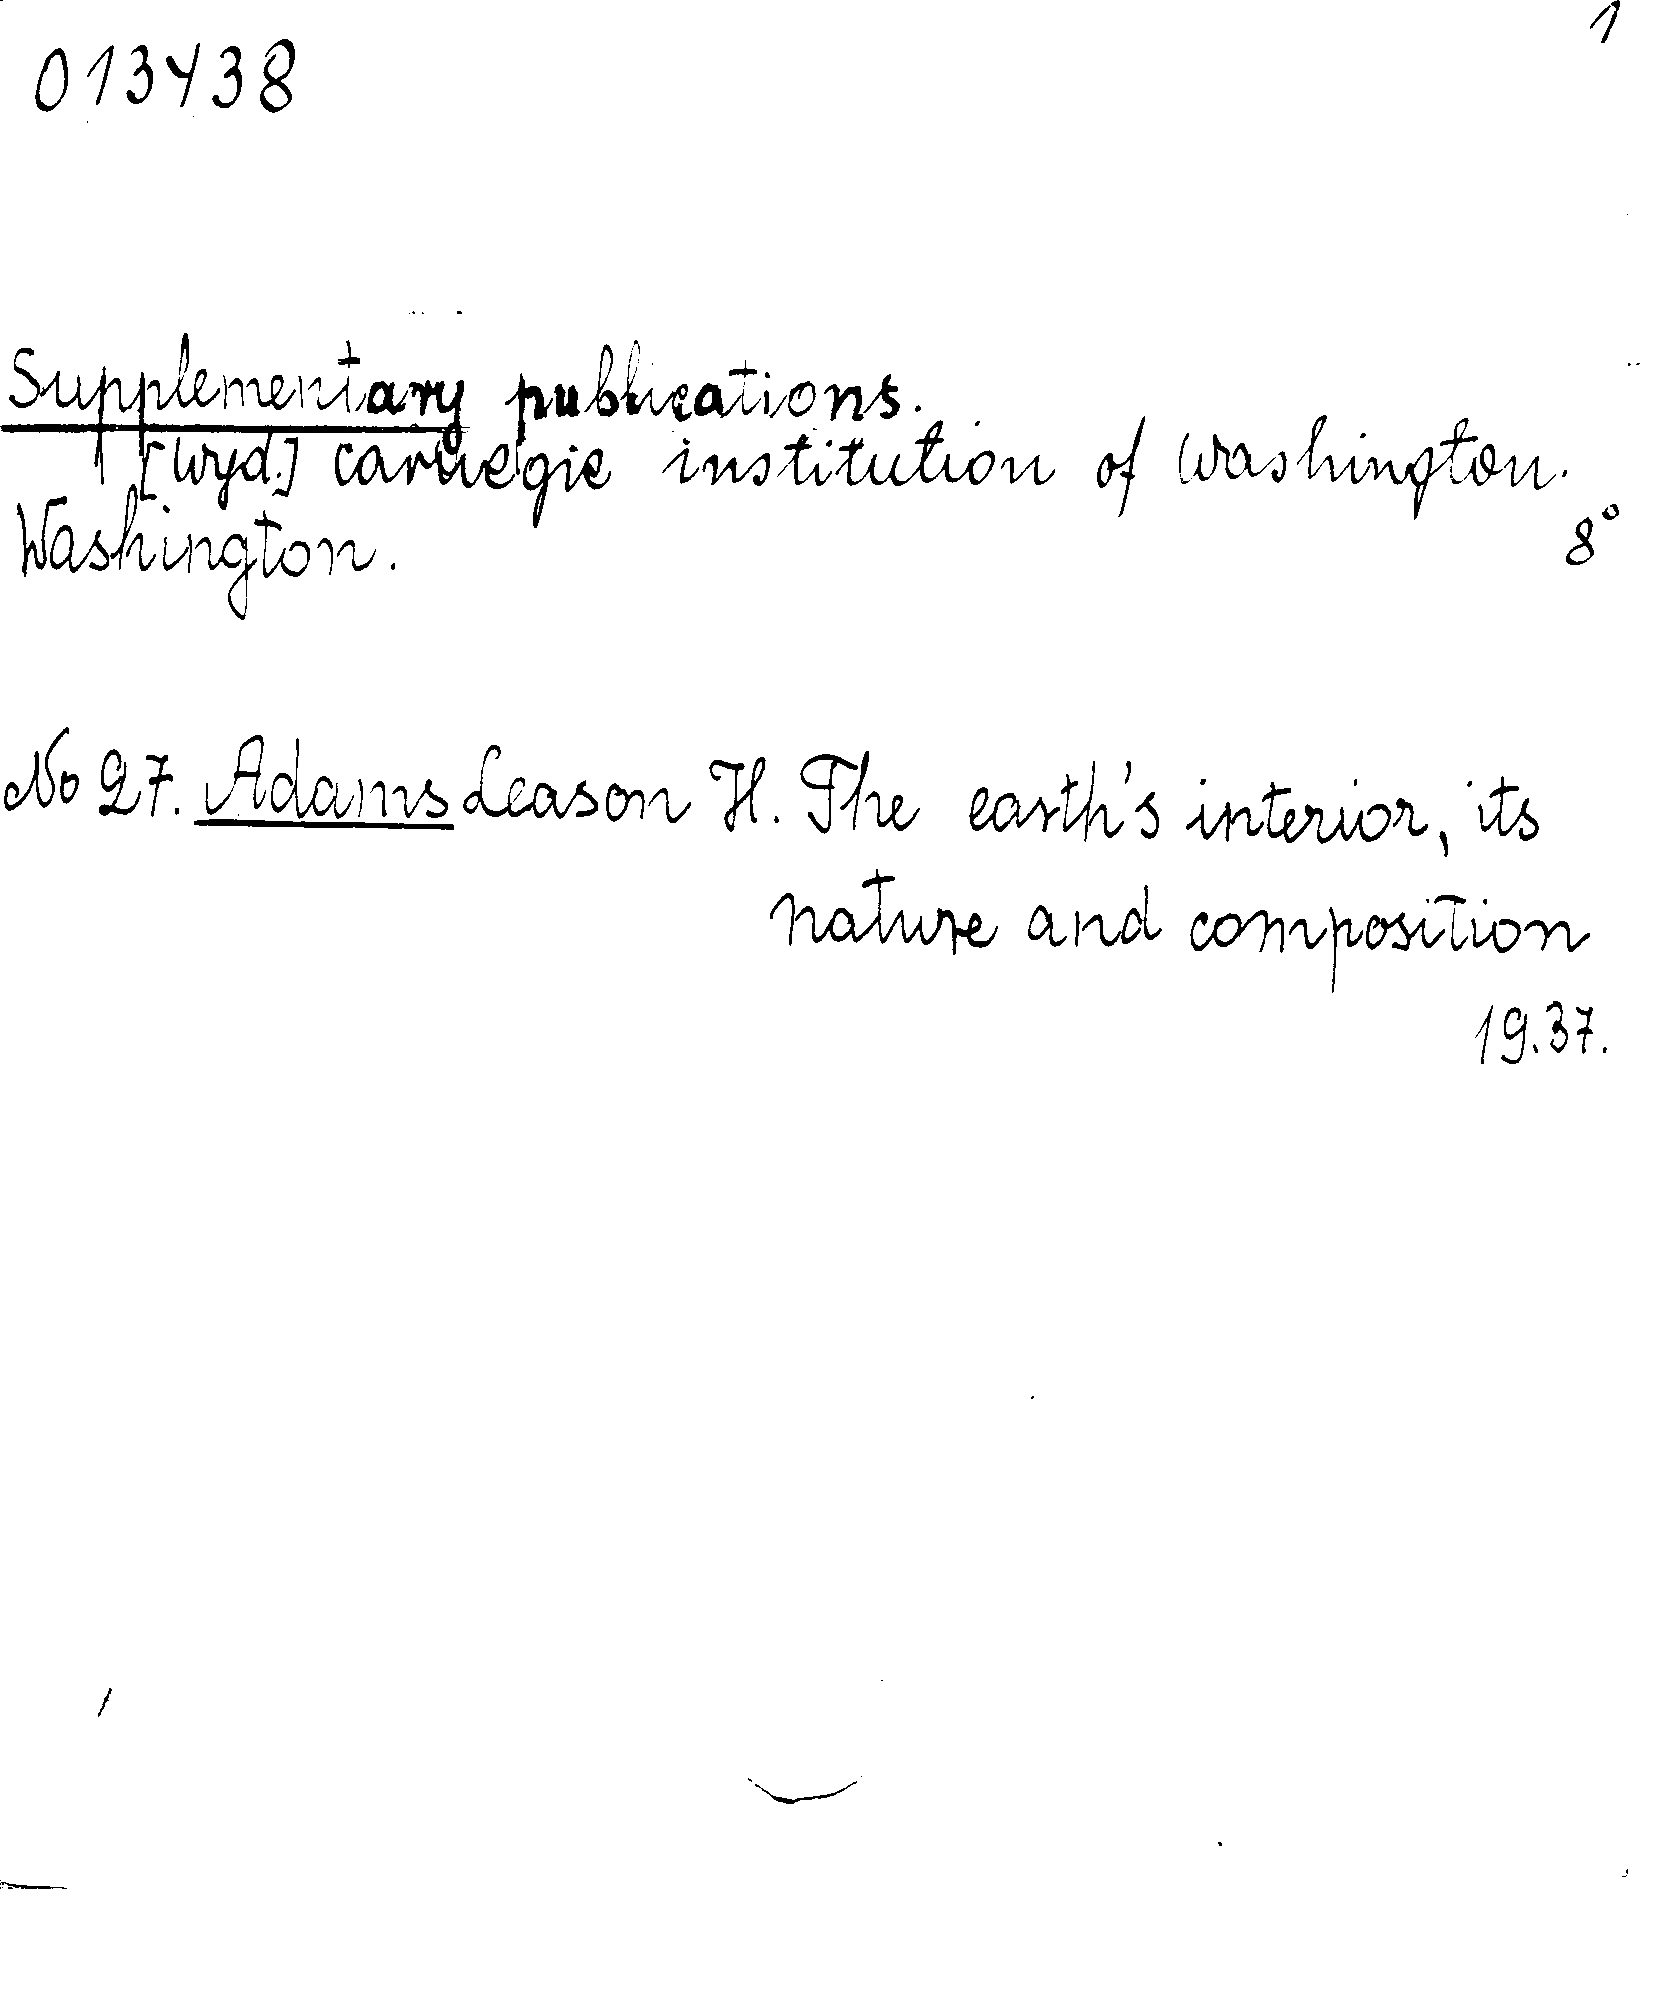 1
013438
Supplementary publications.
[Wyd.] Carnegie institution of Washington.
Washington. 8°
No 27. Adams Leason H. The earth's interior, its
nature and composition
19.37.